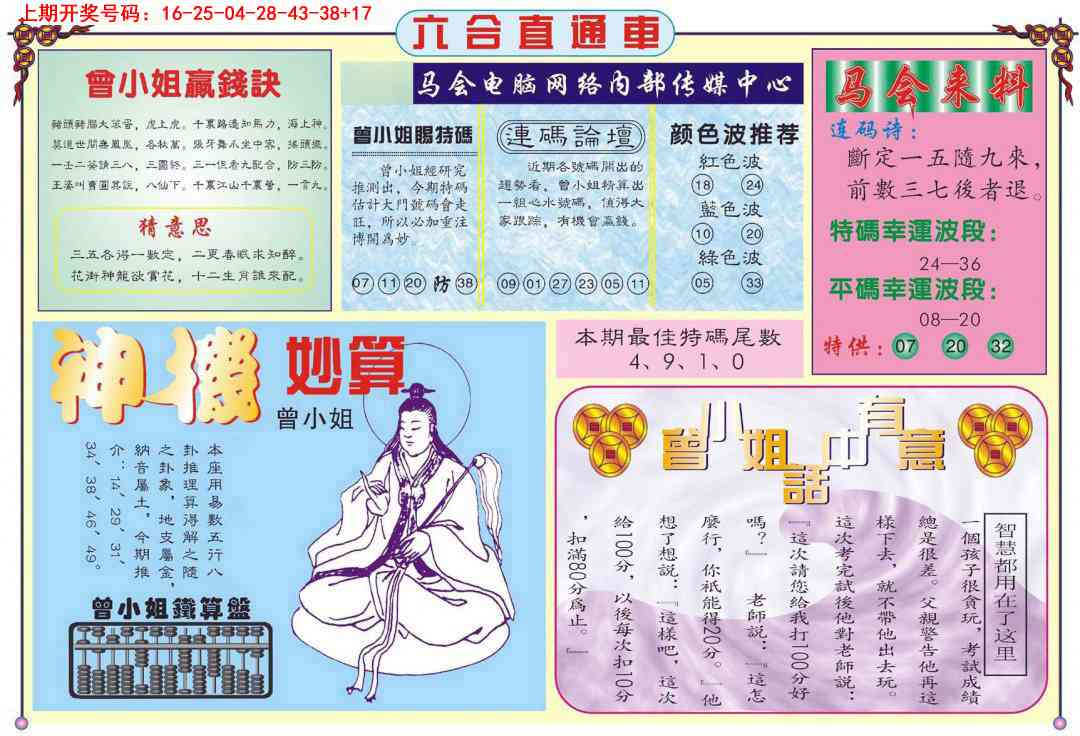 上期开奖号码：16-25-04-28-43-38+17
六合直通車
曾小姐贏錢訣
豬頭豬腦大眾當，虎上虎。千裏路遙知馬力，海上神。
莫道世間無鳳凰，各秋萬。張牙舞爪坐中宮，搖頭緩。
一壬二葵請三八，三圍終。三一但看九配合，防三防。
王婆叫賣圓其說，八仙下。千裏江山千裏營，一言九。
猜意思
三五各得一數定，二更春眠求知醉。
花街神龍欲賞花，十二生肖誰來配。
马会电脑网络内部传媒中心
曾小姐賜特碼
曾小姐經研究
推測出，今期特碼
估計大門號碼會走
旺，所以必加重注
博開爲妙。
07 11 20 防 38
連碼論壇
近期各號碼開出的
趨勢看，曾小姐精算出
一組心水號碼，值得大
家跟踪，有機會贏錢。
09 01 27 23 05 11
颜色波推荐
紅色波
18 24
藍色波
10 20
綠色波
05 33
马会来料
连码诗：
斷定一五隨九來，
前數三七後者退。
特碼幸運波段：
24—36
平碼幸運波段：
08—20
特供：07 20 32
神機妙算
曾小姐
本座用易數五行八
卦推理算得解之隨
之卦象，地支屬金，
納音屬土，今期推
介：14、29、31、
34、38、46、49。
曾小姐鐵算盤
本期最佳特碼尾數
4、9、1、0
曾小姐話中有意
智慧都用在了这里
一個孩子很貪玩，考試成績
總是很差。父親警告他再這
樣下去，就不帶他出去玩。
這次考完試後他對老師説：
『這次請您給我打100分好
嗎？』　老師説：『這怎
麼行，你衹能得20分。』他
想了想説：『這樣吧，這次
給100分，以後每次扣10分
，扣滿80分爲止。』